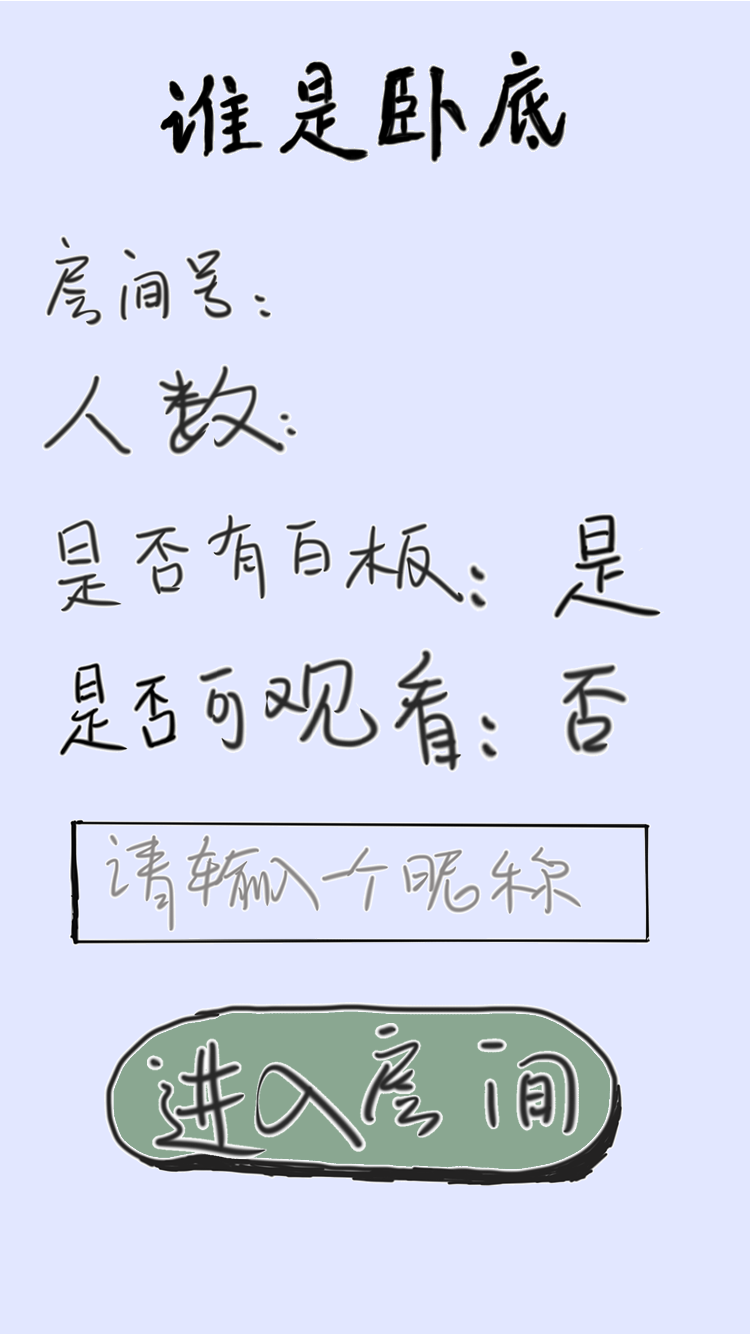 谁是卧底
房间号:
人数:
是否有白板: 是
是否可观看: 否
请输入一个昵称
进入房间